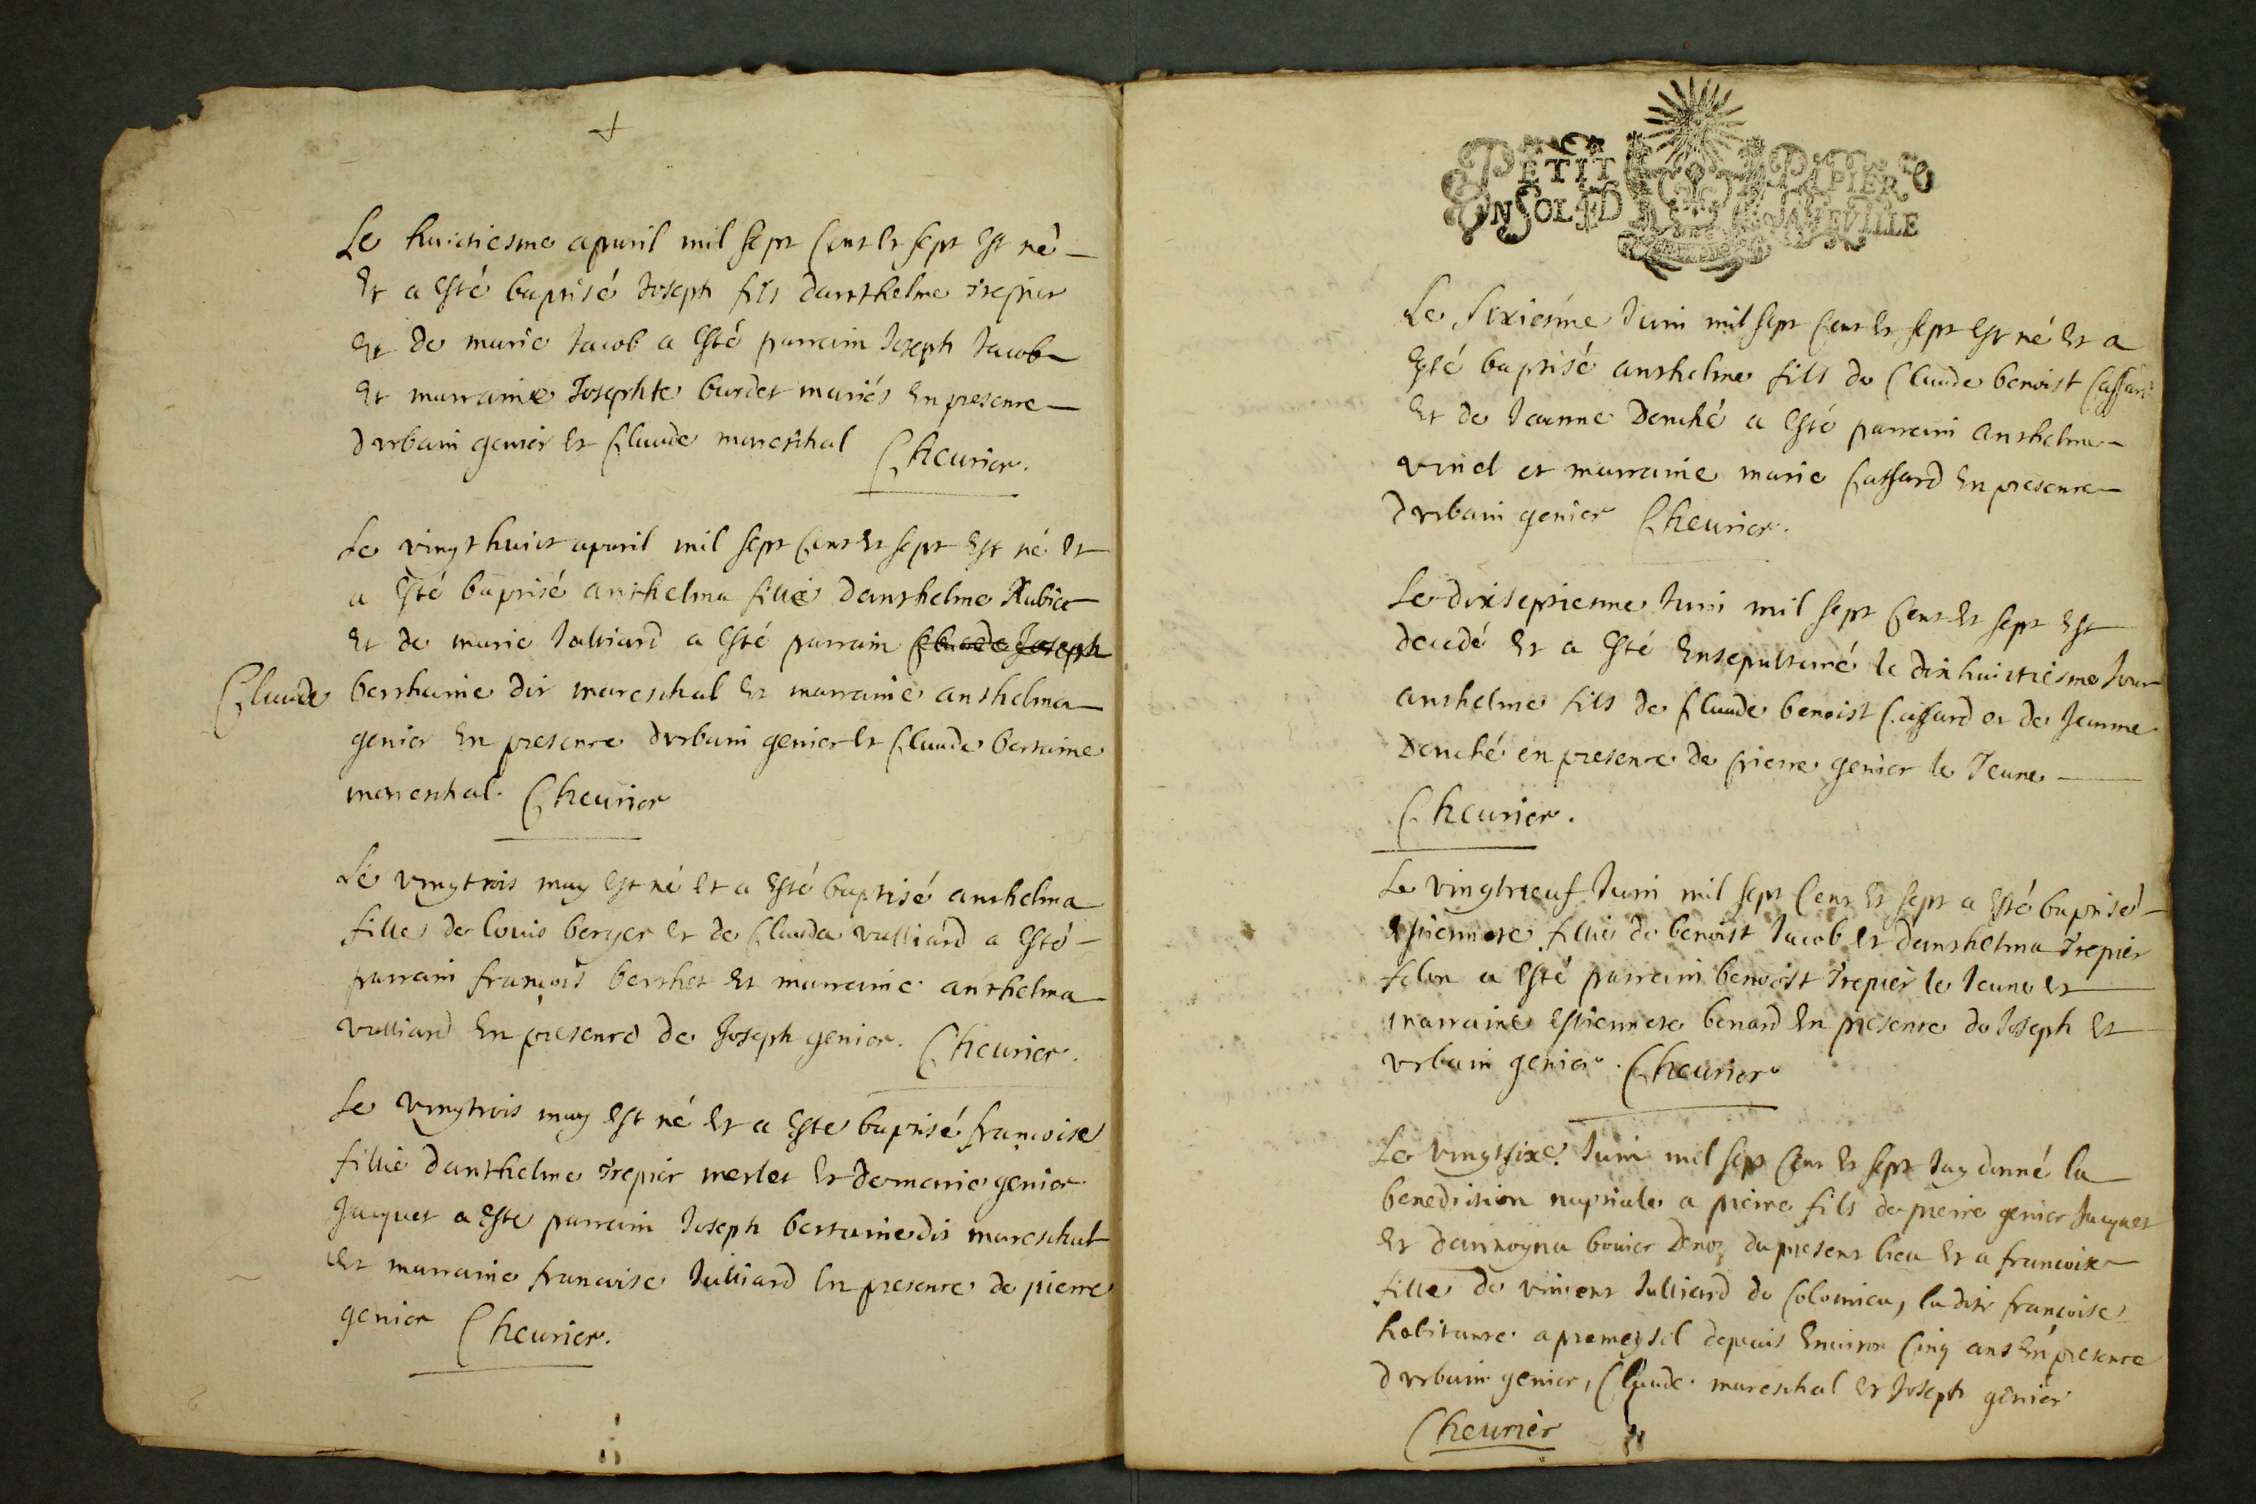 Le huictiesme apuril mil sept Cent et sept est né
Et a esté baptisé Joseph fils danthelme trepier
Et de marie Jacob a esté parrain Joseph Jacob
Et marraine Josephte burdet mariés En presence
durbain genier et Claude mareschal Cheurier.
Le vingt huict apuril mil sept Cent Et sept Est né Et
a Esté baptisé anthelma fillie danthelme Rubier
Et de marie Julliard a Esté parrain Claude Joseph
Claude
berthaine dit mareschal Et marraine anthelma
genier En presence durbain genier Et Claude bertaine
mareschal. Cheurier
Le vingtrois may Est né Et a Esté baptisé anthelma
fille de louis berger et de Clauda vulliard a Esté
parrain françois berthet Et marraine anthelma
vulliard En presence de Joseph genier. Cheurier.
Le vingtrois may Est né Et a Este baptisé francoise
fillie danthelme trepier merlet Et de marie genier
Jacquet a Este parrain Joseph bertaine dit mareschal
Et marraine francoise Julliard En presence de pierre
genier Cheurier.
PETIT PAPIER
UN SOL LE D
Le Sixiesme Juin mil sept Cent Et sept Est né Et a
Esté baptisé anthelme fils de Claude benoist Cassard
Et de Jeanne Denché a Esté parrain anthelme
vinel et marraine marie Cassard En presence
durbain genier Cheurier.
Le dixseptiesme Juin mil sept Cent Et sept Est
decedé Et a Esté Ensepulturé le dix huictiesme Jour
anthelme fils de Claude benoist Cassard et de Jeanne
Denché en presence de pierre genier le Jeune
Cheurier.
Le vingtneuf Juin mil sept Cent Et sept a Esté baptisé
Estiennete fillie de benoist Jacob et danthelma trepier
felon a Esté parrain benoist trepier le Jeune Et
marraine Estiennete benard En presence de Joseph Et
vrbain genier. Cheurier
Le vingtsixe. Juin mil sept Cent Et sept Jay donné la
benediction nuptiale a pierre fils de pierre genier Jacquet
Et danthoyna bouier Denoz du present lieu Et a francoise
fille de vincent Julliard de Colomieu, ladite francoise
habitante a premeysel depuis Enuiron Cinq ans En presence
durbain genier, Claude mareschal Et Joseph genier
Cheurier